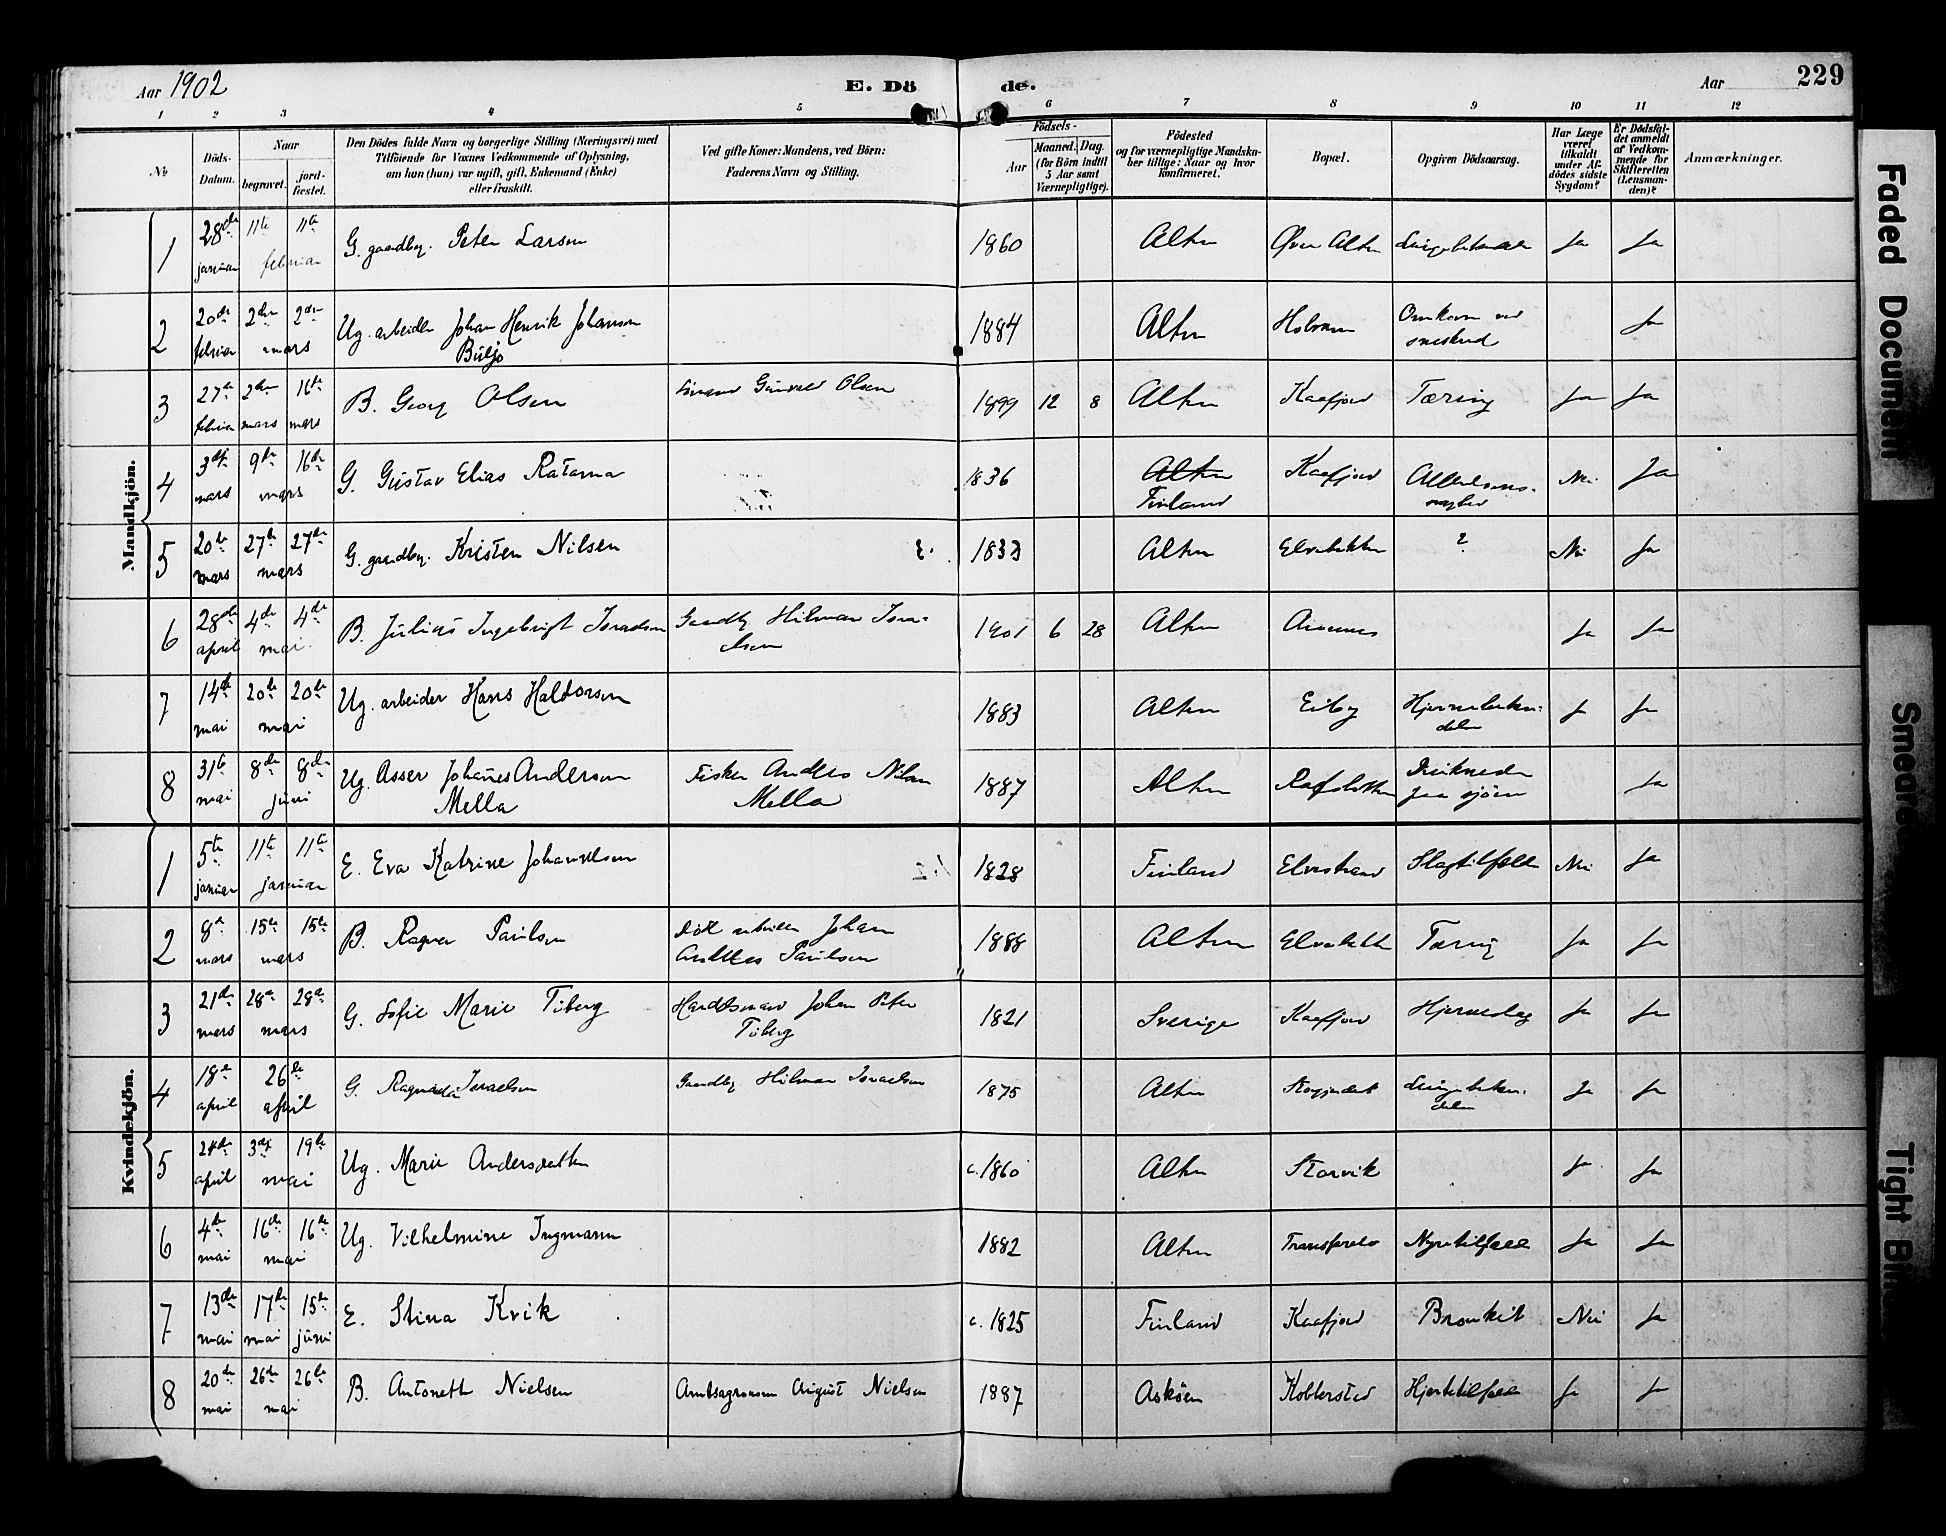 Aar 1902
E. Dö
de.
Aar
229
1 2 3 4 5 6 7 8 9 10 11 12
No
Döds-Datum.
Naar
begravet.
jord-fæstet.
Den Dödes fulde Navn og borgerlige Stilling (Næringsvei) med
Tilföiende for Voxnes Vedkommende af Oplysning,
om han (hun) var ugift, gift, Enkemand (Enke)
eller fraskilt.
Ved gifte Koner: Mandens, ved Börn:
Faderens Navn og Stilling.
Födsels-
Aar
Maaned. Dag.
(for Börn indtil
5 Aar samt
Værnepligtige).
Födested
og for værnepligtige Mandska-
ber tillige: Naar og hvor
konfirmeret.
Bopæl.
Opgiven Dödsaarsag.
Har Læge
været
tilkaldt
under Af-
dödes sidste
Sygdom?
Er Dödsfal-
det anmeldt
af Vedkom-
mende for
Skifteretten
(Lensman-
den)?
Anmærkninger.
Mandkjön.
1 28de januar 11te 11te februar G. gaardbr. Peter Larsen 1860 Alten Øvre Alten Ja Ja
2 20de februar 2den 2den mars Ug. arbeider Johan Henrik Johansen Buljo 1884 Alten Holvann Omkom ved sneskred Ja
3 27de februar 2den mars 16de mars B. Georg Olsen Gunvald Olsen 1899 12 8 Alten Kaafjord Tæring Ja Ja
4 3die mars 9de 16de mars G. Gustav Elias Ratama 1836 Alten Finland Kaafjord Alderdoms-svaghed Nei Ja
5 20de mars 27de 27de mars G. gaardbr. Kristen Nilsen 1833 Alten Elvebakken ? Nei Ja
6 28de april 4de 4de mai B. Julius Ingebrigt Israelsen Gaardbr Hilmar Isra-elsen 1901 6 28 Alten Aronnes Ja Ja
7 14de mai 20de 20de mai Ug. arbeider Hans Haldorsen 1883 Alten Eiby Hjernebeten-delse Ja Ja
8 31te mai 8de 8de juni Ug. Asser Johannes Andersen Mella Fisker Anders Nilsen Mella 1887 Alten Rafsbotten Druknede paa sjøen Ja
Kvindekjön.
1 5te januar 11te 11te januar E. Eva Katrine Johannesen 1828 Finland Elvestrand Slagtilfælde Nei Ja
2 8de mars 15de 15de mars B. Ragna Paulsen död arbeider Johan Andreas Paulsen 1888 Alten Elvebakken Tæring Ja Ja
3 21de mars 28de 28de mars G. Sofie Marie Tiberg Handelsmand Johan Peter Tiberg 1821 Sverige Kaafjord Hjerneslag Ja Ja
4 18de april 26de april G. Ragnada Israelsen Gaardbr Hilmar Israelsen 1875 Alten Lungebeten-delse Ja Ja
5 24de april 3die 19de mai Ug. Marie Andersdatter c. 1860 Alten Storvik Ja Ja
6 4de mai 16de 16de mai Ug. Vilhelmine Ingmann 1882 Alten Transfarelv Nyretilfælde Ja Ja
7 13de mai 17de mai 15de juni E. Stina Kvik c. 1825 Finland Kaafjord Bronkit Nei Ja
8 20de mai 26de 26de mai B. Antoneth Nielsen Amtsagronom August Nielsen 1887 Askøen Kobberstad Hjertetilfælde Ja Ja
Faded Document
Smeared
Tight Bi